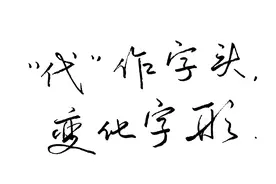 “代”作字头,
变化字形.